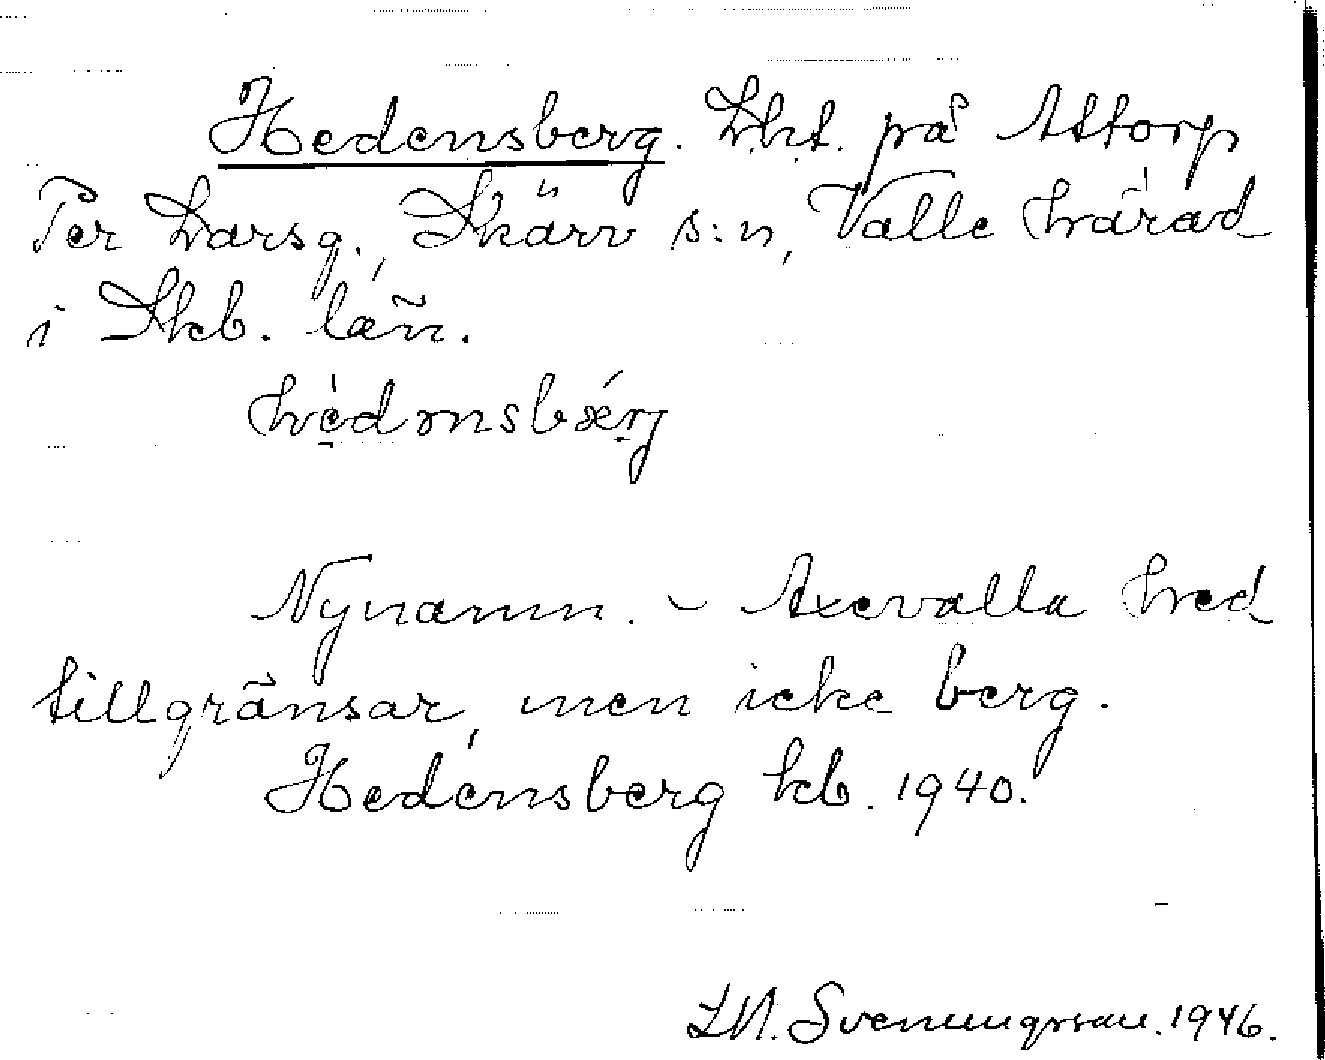 Hedensberg. Lht. på Attorp
Per Larsg., Skärv s:n, Valle härad
i Skb. län.
hèdənsbærj
Nynamn. – Axevalla hed
tillgränsar, men icke berg.
Hedénsberg kb. 1940.
Svenungsson. 1946.